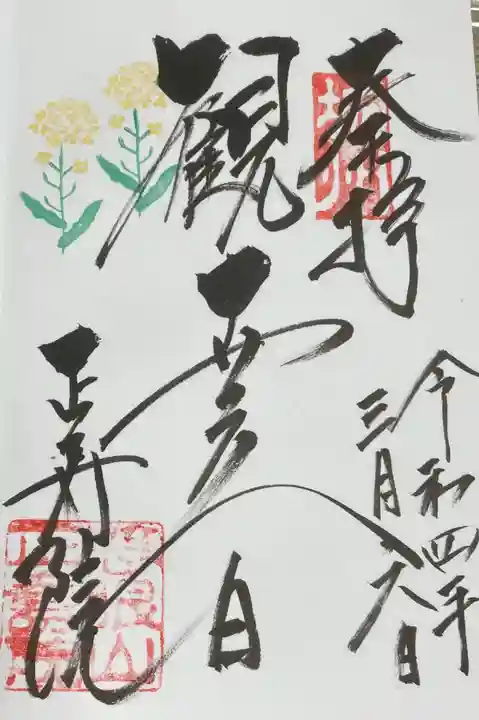 奉拝
令和四年
三月六日
觀世音
正寿院